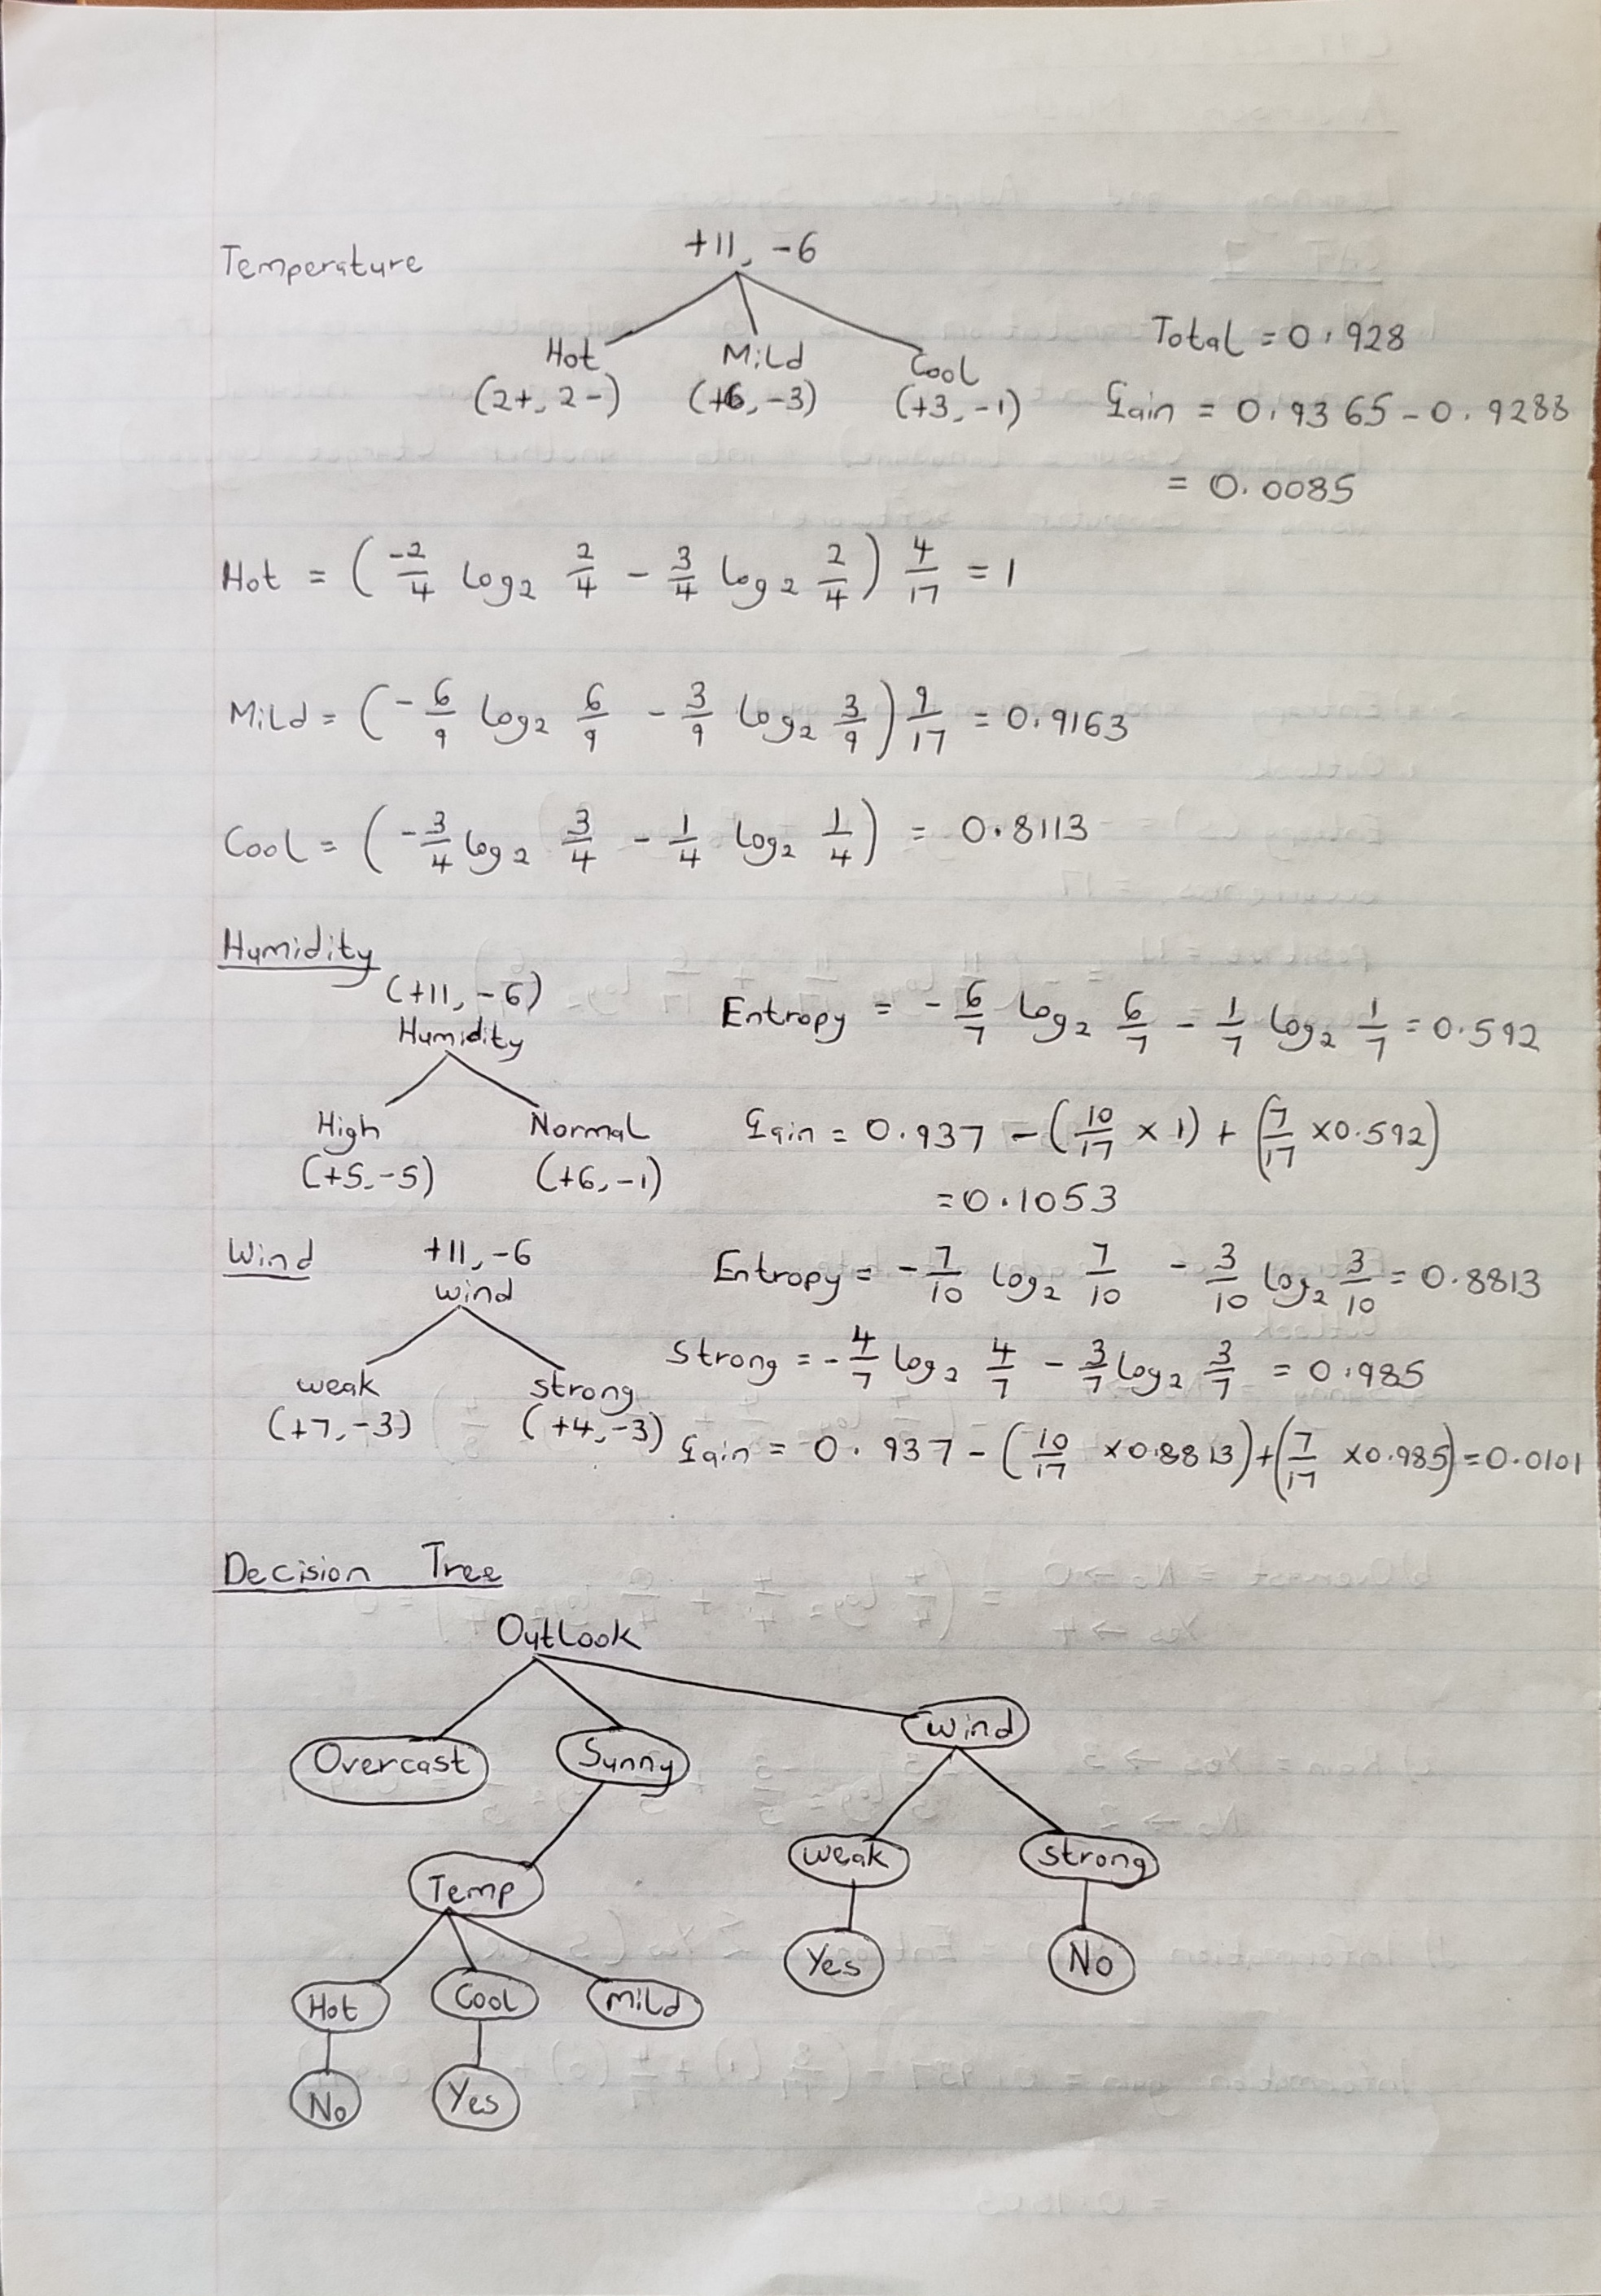 Temperature +11, -6
Total = 0.928
Hot Mild Cool
(2+, 2-) (+6, -3) (+3, -1)
Gain = 0.9365 - 0.9288
= 0.0085
Hot = (-2/4 log2 2/4 - 3/4 log2 2/4) 4/17 = 1
Mild = (-6/9 log2 6/9 - 3/9 log2 3/9) 9/17 = 0.9163
Cool = (-3/4 log2 3/4 - 1/4 log2 1/4) = 0.8113
Humidity
(+11, -6)
Humidity
Entropy = -6/7 log2 6/7 - 1/7 log2 1/7 = 0.592
High Normal
(+5, -5) (+6, -1)
Gain = 0.937 - (10/17 × 1) + (7/17 × 0.592)
= 0.1053
Wind +11, -6
Wind
Entropy = -7/10 log2 7/10 - 3/10 log2 3/10 = 0.8813
Strong = -4/7 log2 4/7 - 3/7 log2 3/7 = 0.985
weak strong
(+7, -3) (+4, -3)
Gain = 0.937 - (10/17 × 0.8813) + (7/17 × 0.985) = 0.0101
Decision Tree
Outlook
Overcast Sunny Wind
Temp weak strong
Yes No
Hot Cool Mild
No Yes